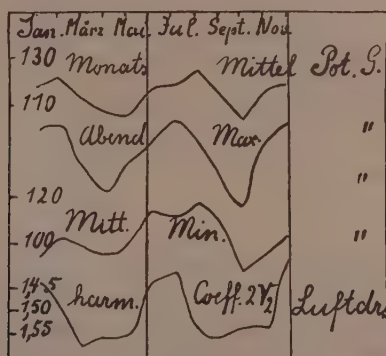 Jan. März Mai Jul. Sept. Nov.
130
Monats Mittel Pot. G.
110
Abend Max. "
"
120
Mitt. Min. "
100
14.5
harm. Coeff. 2γ₂ Luftdr.
1,50
1,55